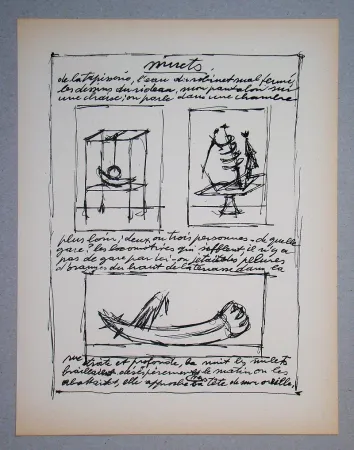 muets
de la tapisserie, l'eau du robinet mal fermé,
les dessins du rideau, mon pantalon sur
une chaise; on parle dans une chambre
plus loin; deux ou trois personnes - de quelle
gare? les locomotives qui sifflent, il n'y a
pas de gare par ici - on jetait des pelures
d'oranges du haut de la terrasse dans la
rue étroite et profonde, la nuit les mulets
braillaient désespérement, le matin on les
abattait, elle approche sa tête de mon oreille,